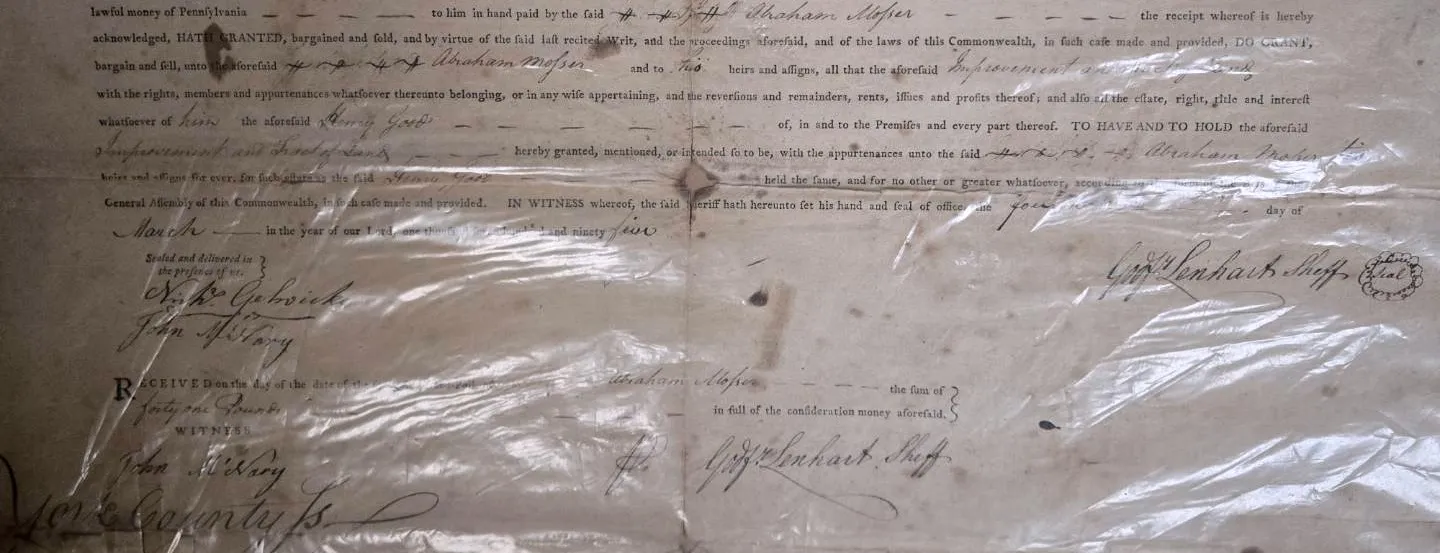 lawful money of Pennſylvania — — — — — to him in hand paid by the ſaid Abraham Moſser — — — — — the receipt whereof is hereby
acknowledged, HATH GRANTED, bargained and ſold, and by virtue of the ſaid laſt recited Writ, and the proceedings aforeſaid, and of the laws of this Commonwealth, in ſuch caſe made and provided, DO GRANT,
bargain and ſell, unto the aforeſaid Abraham Moſser and to his heirs and aſſigns, all that the aforeſaid Improvement and
with the rights, members and appurtenances whatſoever thereunto belonging, or in any wiſe appertaining, and the reverſions and remainders, rents, iſſues and profits thereof; and alſo all the eſtate, right, title and intereſt
whatſoever of him the aforeſaid Henry Good — — — — — — of, in and to the Premiſes and every part thereof. TO HAVE AND TO HOLD the aforeſaid
Improvement and Tract of Land — — — — hereby granted, mentioned, or intended ſo to be, with the appurtenances unto the ſaid Abraham Moſser his
heirs and aſſigns for ever, for ſuch eſtate as the ſaid Henry Good — — held the ſame, and for no other or greater whatſoever, according to
General Aſſembly of this Commonwealth, in ſuch caſe made and provided. IN WITNESS whereof, the ſaid Sheriff hath hereunto ſet his hand and ſeal of office, the day of
March — in the year of our Lord, one and ninety four
Sealed and delivered in
the preſence of us.
John McNary
Godfy. Lenhart Sheff
Seal
RECEIVED on the day of the date of the Abraham Moſser — — — — the ſum of
forty one Pounds — — in full of the conſideration money aforeſaid.
WITNESS
John McNary
Godfy. Lenhart Sheff
York County ſs